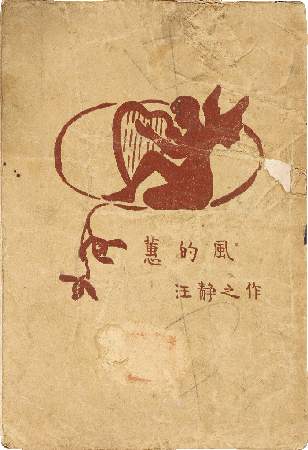 蕙的風
汪静之作